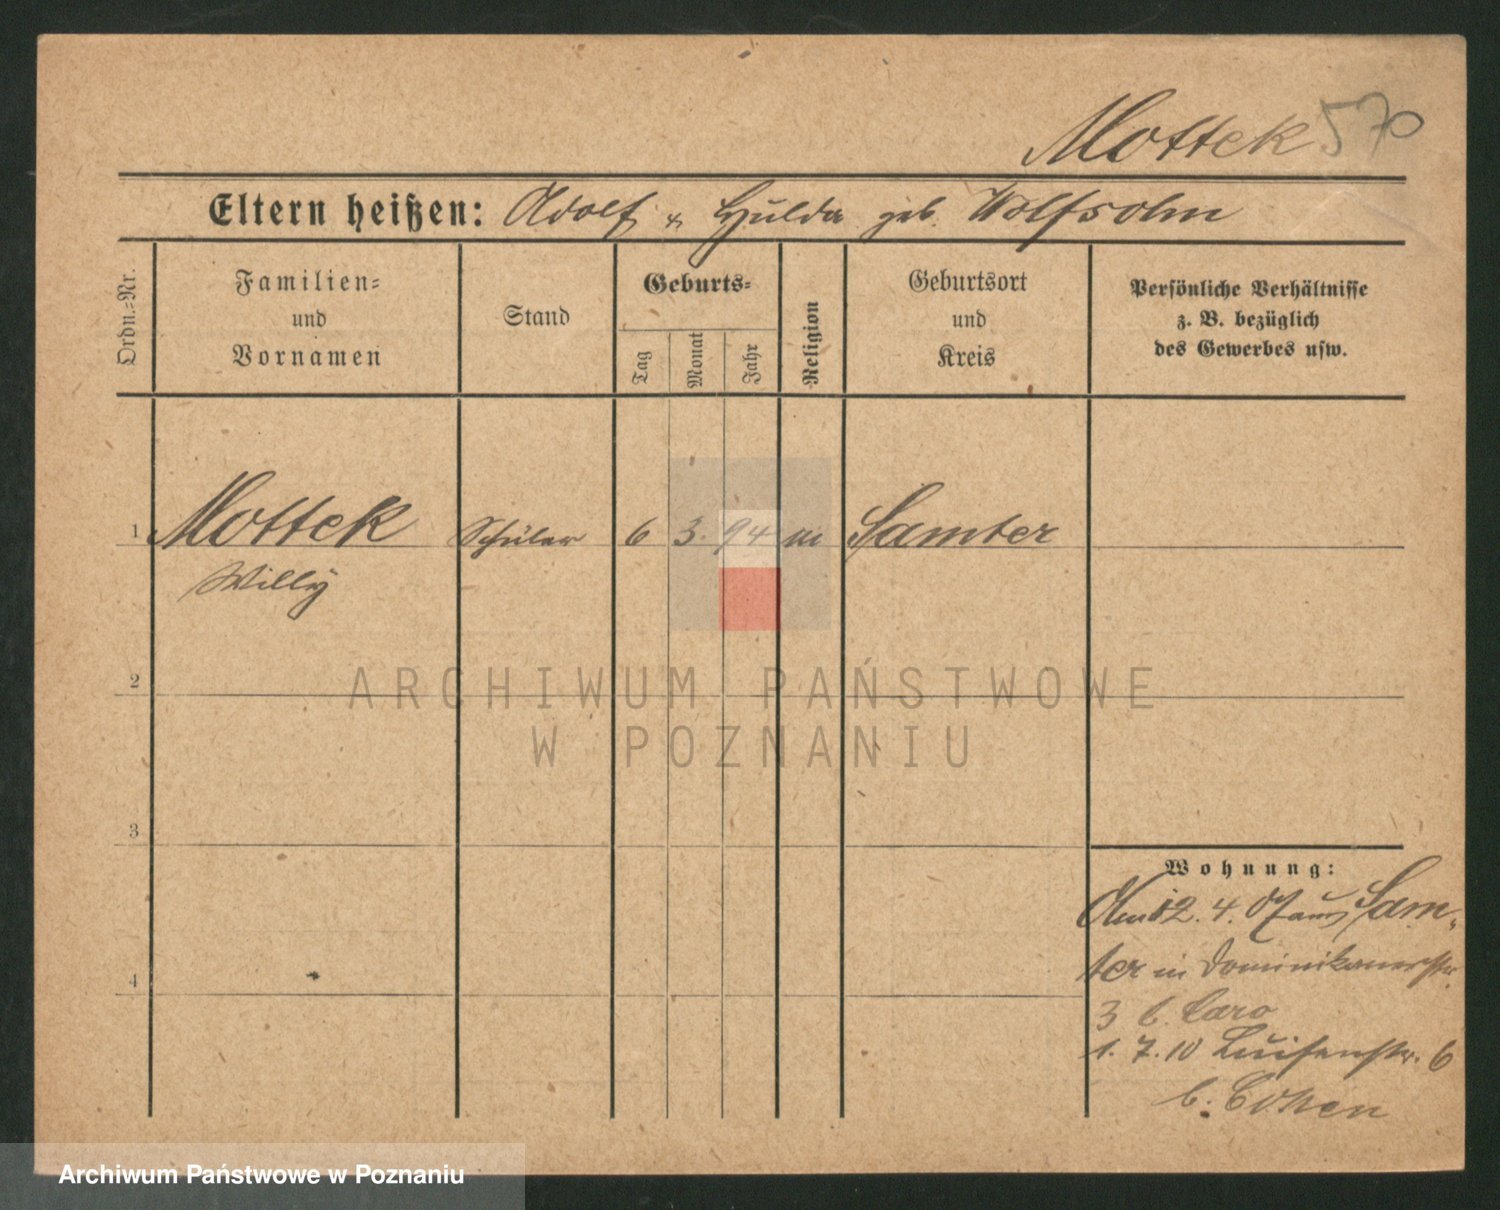 Mottek 570
Eltern heißen: Adolf u Hulda geb. Wolfsohn
Ordn.-Nr.
Familien-
und
Vornamen
Stand
Geburts-
Tag
Monat
Jahr
Religion
Geburtsort
und
Kreis
Persönliche Verhältnisse
z. B. bezüglich
des Gewerbes usw.
1 Mottek Schüler 6 3. 94 m Samter
Willy
2
ARCHIWUM PAŃSTWOWE
W POZNANIU
3
Wohnung:
12. 4. 07 aus Sam-
4
ter in Dominikanerstr.
3 b. Caro
1. 7. 10 Luisenstr. 6
b. Cohen
Archiwum Państwowe w Poznaniu